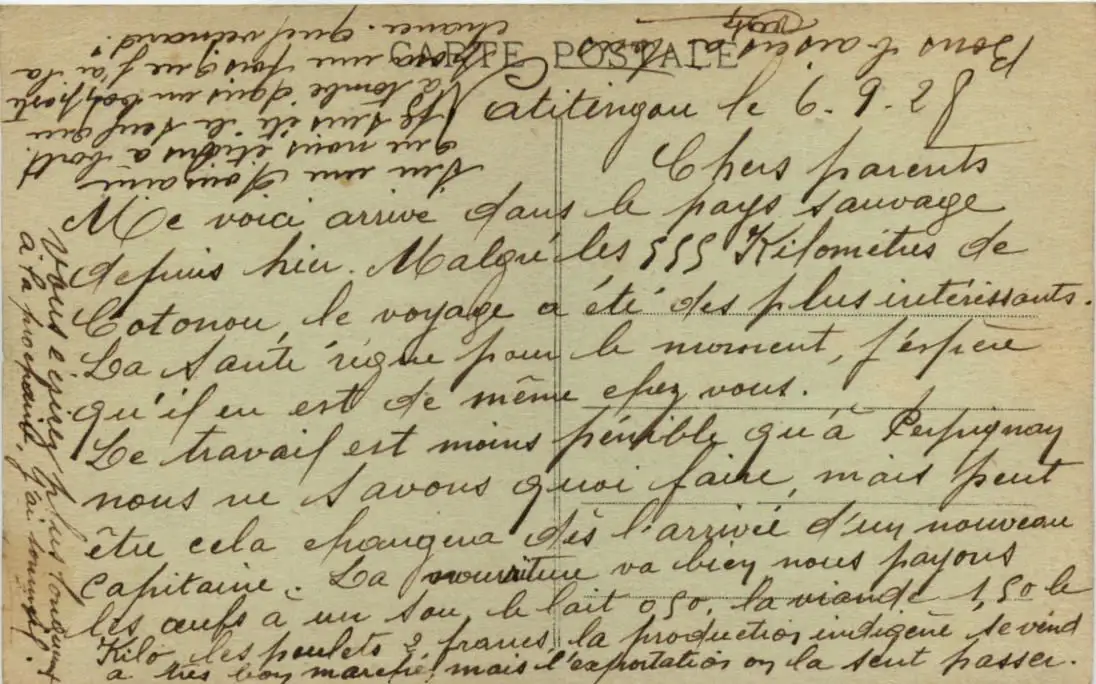 CARTE POSTALE
Natitingou le 6.9.28
Chers parents
Me voici arrivé dans le pays sauvage
depuis hier. Malgré les 555 Kilomètres de
Cotonou, le voyage a été des plus intéressants.
La santé règne pour le moment, j'espère
qu'il en est de même chez vous.
Le travail est moins pénible qu'à Perpignan
nous ne savons quoi faire, mais peut
être cela changera dès l'arrivée d'un nouveau
Capitaine. La nourriture va bien nous payons
les œufs à un sou, le lait 0,50, la viande 1,50 le
Kilo, les poulets 2 francs, la production indigène se vend
à très bon marché, mais l'exportation on la sent passer.
Vous écrirez plus longuement
à la prochaine, j'ai sommeil.
Sur une douzaine
que nous étions à bord
je suis été le seul qui
a tombé dans un bon poste
pour une fois que j'ai la
chance. quel veinard!
Bons baisers à tous